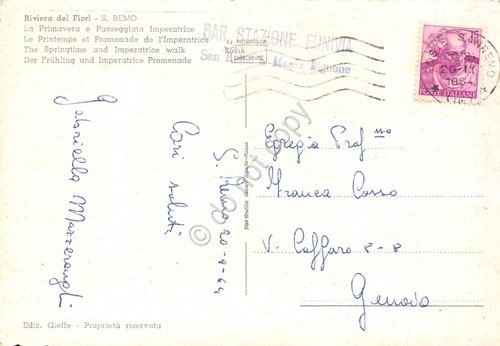 Riviera dei Fiori - S. REMO
La Primavera e Passeggiata Imperatrice
Le Printemps et Promenade de l'Imperatrice
The Springtime and Imperatrice walk
Der Frühling und Imperatrice Promenade
BAR STAZIONE FUNIVIA
San Monte Bignone
15
1964
POSTE ITALIANE
Cari saluti
Gabriella
S. Remo 20-9-64
Egregia Prof.ssa
Franca Cosso
V. Caffaro 8-8
Genova
do not copy
Ediz. Gieffe - Proprietà riservata